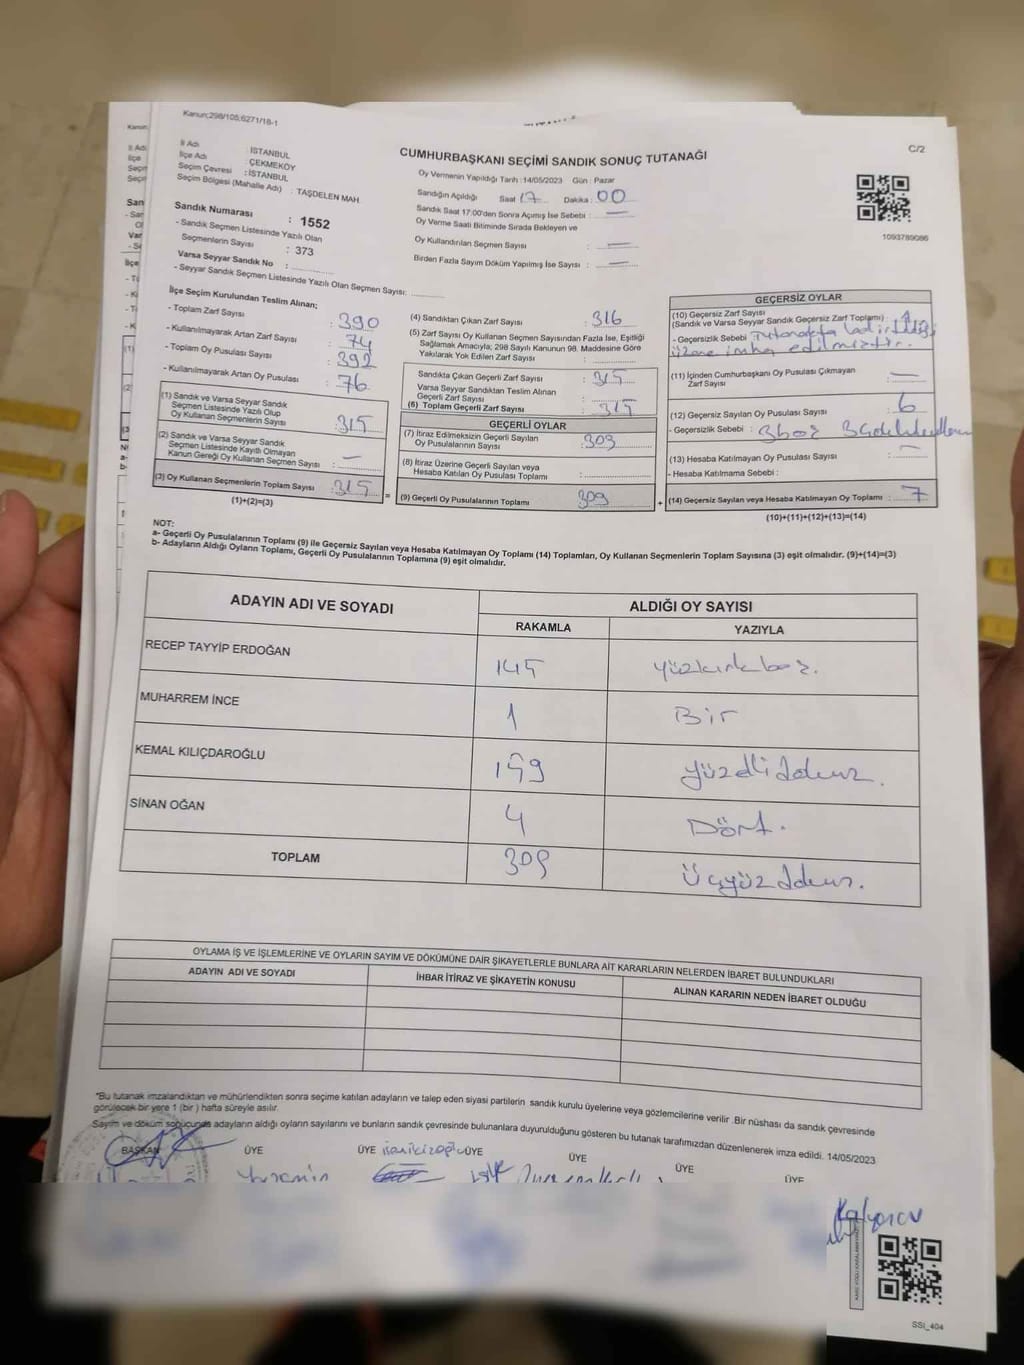 Kanun;298/105;6271/18-1
C/2
CUMHURBAŞKANI SEÇİMİ SANDIK SONUÇ TUTANAĞI
İl Adı : İSTANBUL
İlçe Adı : ÇEKMEKÖY
Seçim Çevresi : İSTANBUL
Seçim Bölgesi (Mahalle Adı) : TAŞDELEN MAH.
Sandık Numarası : 1552
- Sandık Seçmen Listesinde Yazılı Olan
Seçmenlerin Sayısı : 373
Varsa Seyyar Sandık No :
- Seyyar Sandık Seçmen Listesinde Yazılı Olan Seçmen Sayısı:
Oy Vermenin Yapıldığı Tarih :14/05/2023 Gün : Pazar
Sandığın Açıldığı Saat 17 Dakika : 00
Sandık Saat 17:00'den Sonra Açımış İse Sebebi : —
Oy Verme Saati Bitiminde Sırada Bekleyen ve
Oy Kullandırılan Seçmen Sayısı : —
Birden Fazla Sayım Döküm Yapılmış İse Sayısı : —
1093789086
İlçe Seçim Kurulundan Teslim Alınan;
- Toplam Zarf Sayısı : 390
- Kullanılmayarak Artan Zarf Sayısı : 74
- Toplam Oy Pusulası Sayısı : 392
- Kullanılmayarak Artan Oy Pusulası : 76
(1) Sandık ve Varsa Seyyar Sandık
Seçmen Listesinde Yazılı Olup
Oy Kullanan Seçmenlerin Sayısı : 315
(2) Sandık ve Varsa Seyyar Sandık
Seçmen Listesinde Kayıtlı Olmayan
Kanun Gereği Oy Kullanan Seçmen Sayısı : —
(3) Oy Kullanan Seçmenlerin Toplam Sayısı : 315 =
(1)+(2)=(3)
(4) Sandıktan Çıkan Zarf Sayısı : 316
(5) Zarf Sayısı Oy Kullanan Seçmen Sayısından Fazla İse, Eşitliği
Sağlamak Amacıyla; 298 Sayılı Kanunun 98. Maddesine Göre
Yakılarak Yok Edilen Zarf Sayısı :
Sandıkta Çıkan Geçerli Zarf Sayısı : 315
Varsa Seyyar Sandıktan Teslim Alınan
Geçerli Zarf Sayısı :
(6) Toplam Geçerli Zarf Sayısı : 315
GEÇERLİ OYLAR
(7) İtiraz Edilmeksizin Geçerli Sayılan
Oy Pusulalarının Sayısı : 303
(8) İtiraz Üzerine Geçerli Sayılan veya
Hesaba Katılan Oy Pusulası Toplamı :
(9) Geçerli Oy Pusulalarının Toplamı 309 +
GEÇERSİZ OYLAR
(10) Geçersiz Zarf Sayısı
(Sandık ve Varsa Seyyar Sandık Geçersiz Zarf Toplamı) : 1
- Geçersizlik Sebebi : Tutanakta
üzere imha edilmiştir.
(11) İçinden Cumhurbaşkanı Oy Pusulası Çıkmayan
Zarf Sayısı : —
(12) Geçersiz Sayılan Oy Pusulası Sayısı : 6
- Geçersizlik Sebebi : 3 boş 3
(13) Hesaba Katılmayan Oy Pusulası Sayısı : —
- Hesaba Katılmama Sebebi :
(14) Geçersiz Sayılan veya Hesaba Katılmayan Oy Toplamı : 7
(10)+(11)+(12)+(13)=(14)
NOT:
a- Geçerli Oy Pusulalarının Toplamı (9) ile Geçersiz Sayılan veya Hesaba Katılmayan Oy Toplamı (14) Toplamları, Oy Kullanan Seçmenlerin Toplam Sayısına (3) eşit olmalıdır. (9)+(14)=(3)
b- Adayların Aldığı Oyların Toplamı, Geçerli Oy Pusulalarının Toplamına (9) eşit olmalıdır.
ADAYIN ADI VE SOYADI
ALDIĞI OY SAYISI
RAKAMLA YAZIYLA
RECEP TAYYİP ERDOĞAN 145 yüzkırkbeş.
MUHARREM İNCE 1 Bir
KEMAL KILIÇDAROĞLU 159 yüzellidokuz.
SİNAN OĞAN 4 Dört.
TOPLAM 309 Üçyüzdokuz.
OYLAMA İŞ VE İŞLEMLERİNE VE OYLARIN SAYIM VE DÖKÜMÜNE DAİR ŞİKAYETLERLE BUNLARA AİT KARARLARIN NELERDEN İBARET BULUNDUKLARI
ADAYIN ADI VE SOYADI İHBAR İTİRAZ VE ŞİKAYETİN KONUSU ALINAN KARARIN NEDEN İBARET OLDUĞU
*Bu tutanak imzalandıktan ve mühürlendikten sonra seçime katılan adayların ve talep eden siyasi partilerin sandık kurulu üyelerine veya gözlemcilerine verilir .Bir nüshası da sandık çevresinde
görülecek bir yere 1 (bir ) hafta süreyle asılır.
Sayım ve döküm sonucunda adayların aldığı oyların sayılarını ve bunların sandık çevresinde bulunanlara duyurulduğunu gösteren bu tutanak tarafımızdan düzenlenerek imza edildi. 14/05/2023
BAŞKAN ÜYE ÜYE ÜYE ÜYE ÜYE ÜYE
SSI_404